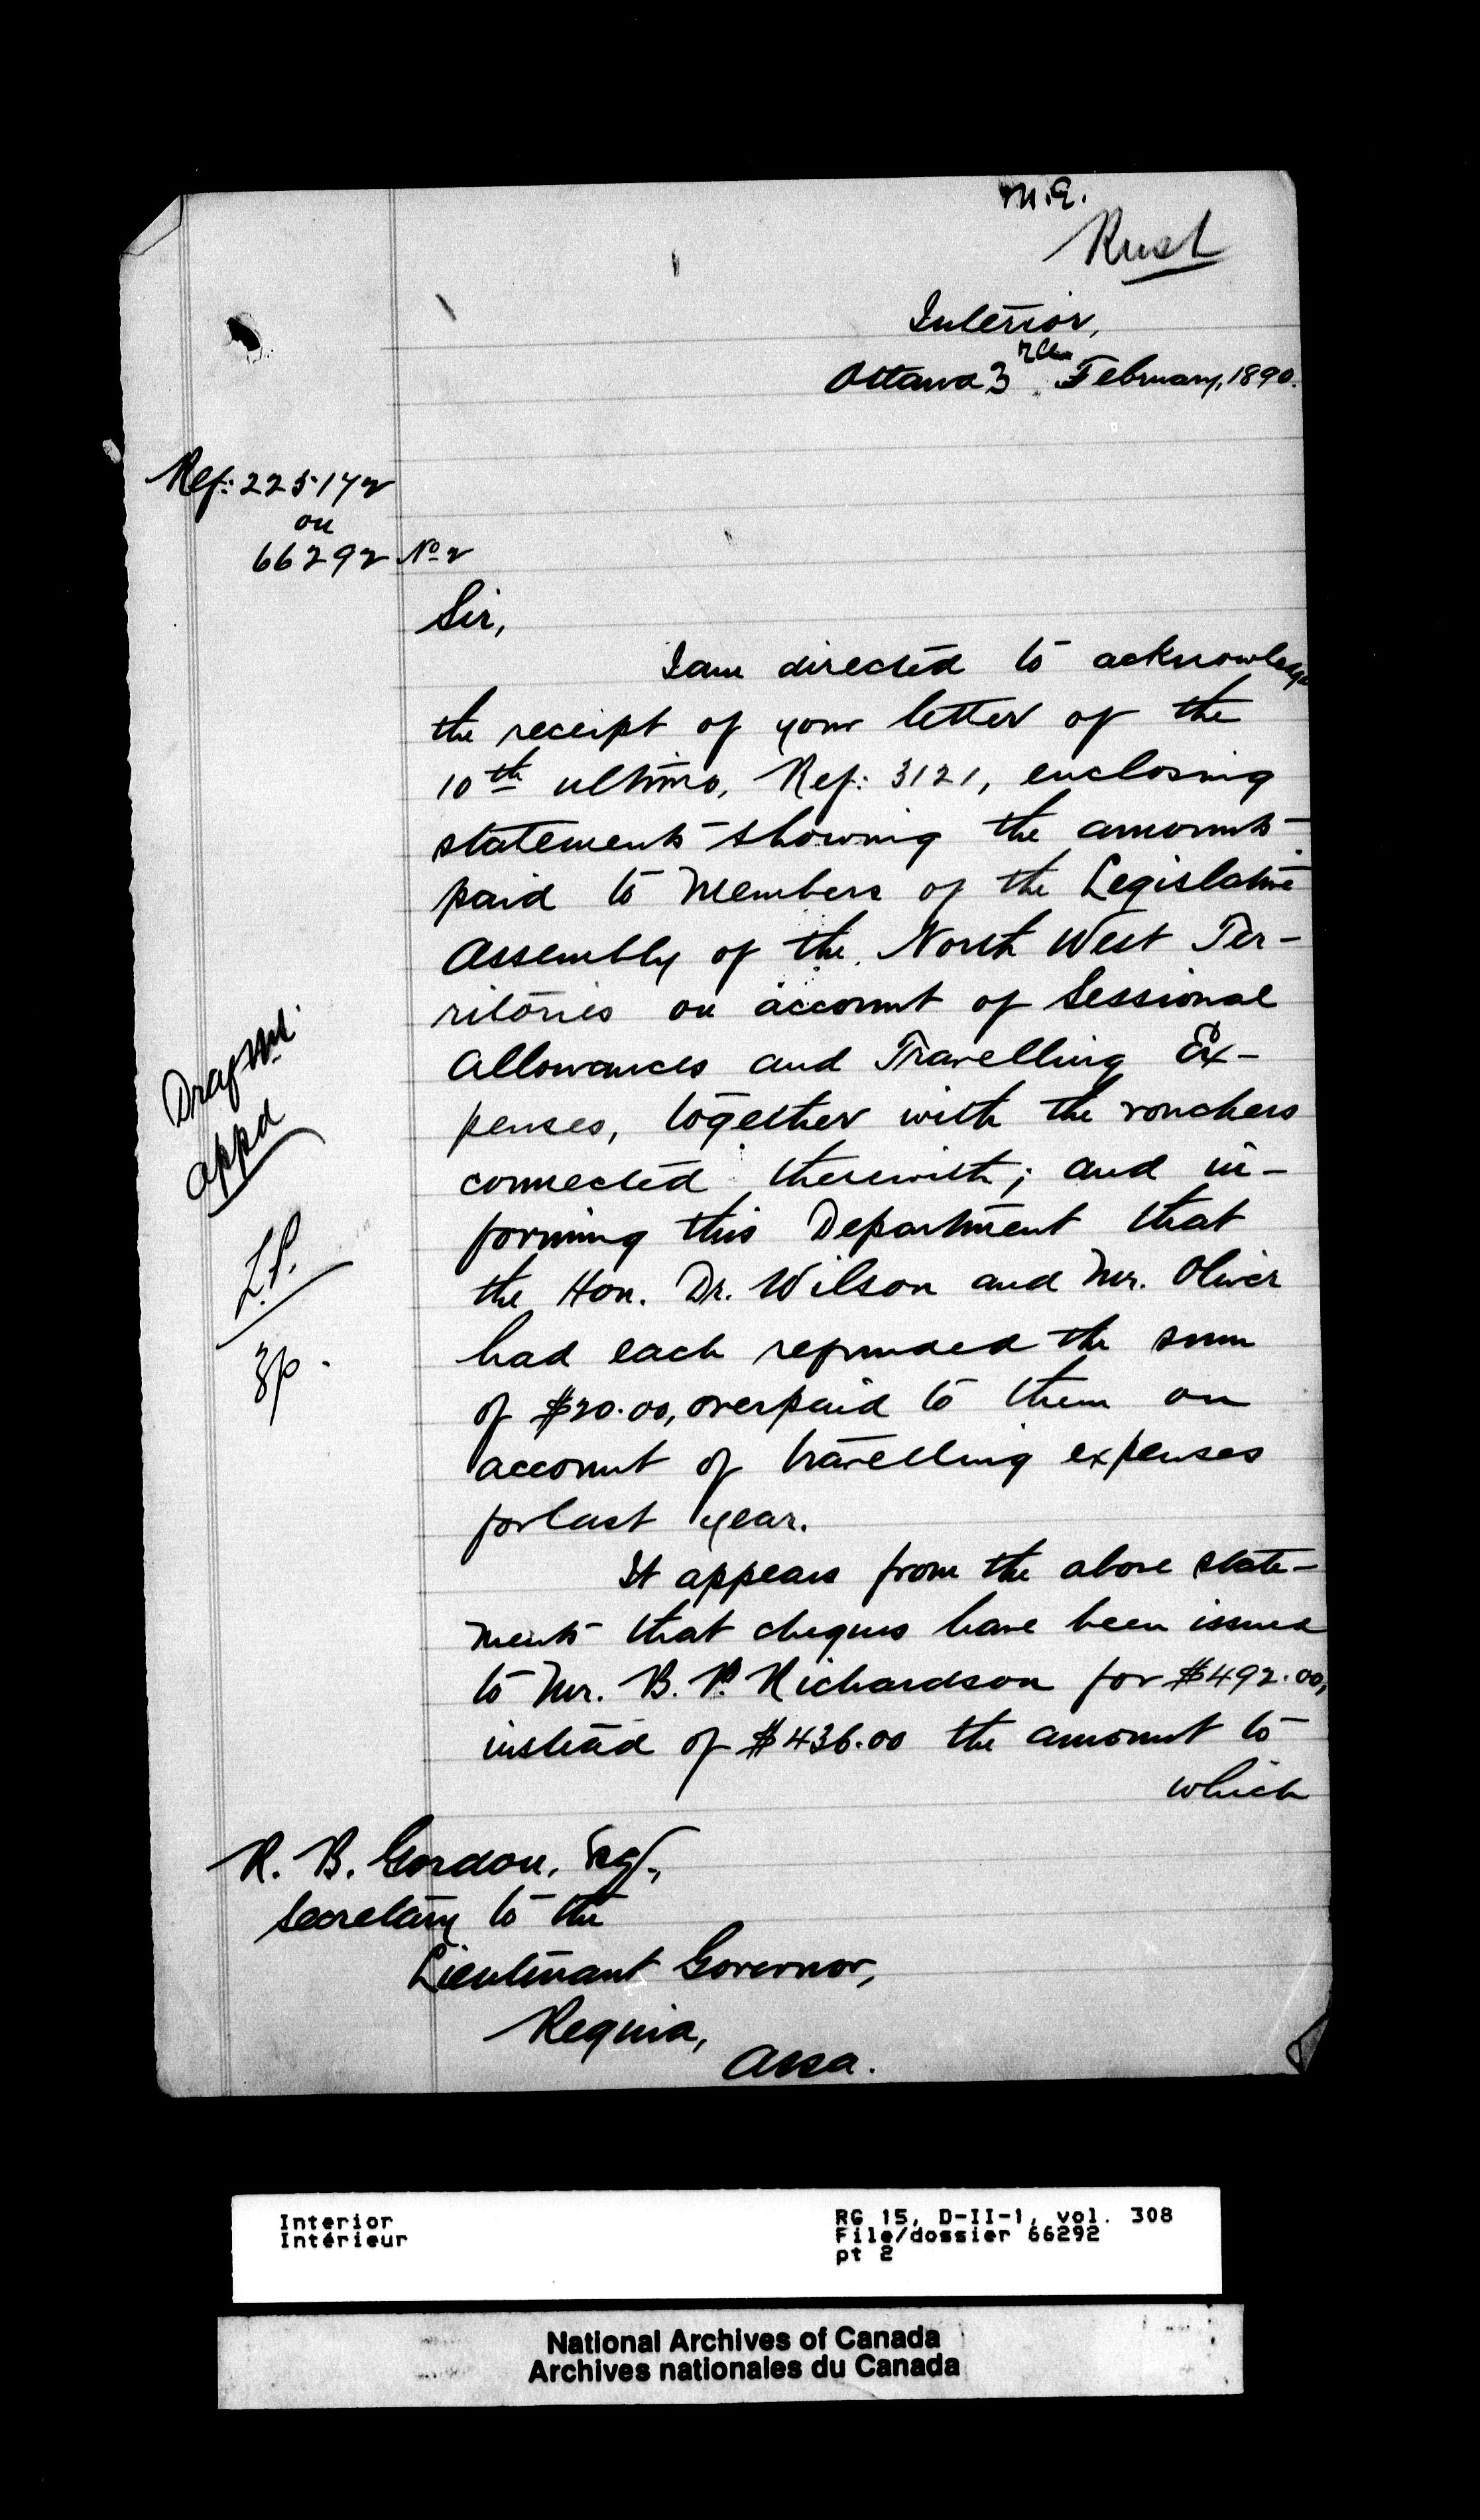 M.E.
Rust
Interior,
Ottawa 3rd February, 1890.
Ref: 225172
on
66292 No 2
Sir,
I am directed to acknowledge
the receipt of your letter of the
10th ultimo, Ref: 3121, enclosing
statements showing the amounts
paid to Members of the Legislative
Assembly of the North West Ter-
ritories on account of Sessional
Allowances and Travelling Ex-
penses, together with the vouchers
connected therewith; and in-
forming this Department that
the Hon. Dr. Wilson and Mr. Oliver
had each refunded the sum
of $20.00, overpaid to them on
account of travelling expenses
for last year.
It appears from the above state-
ments that cheques have been issued
to Mr. B. P. Richardson for $492.00,
instead of $436.00 the amount to
which
Draft
appd
R. B. Gordon, Esq.,
Secretary to the
Lieutenant Governor,
Regina,
Assa.
Interior
Intérieur
RG 15, D-II-1, vol. 308
File/dossier 66292
pt 2
National Archives of Canada
Archives nationales du Canada